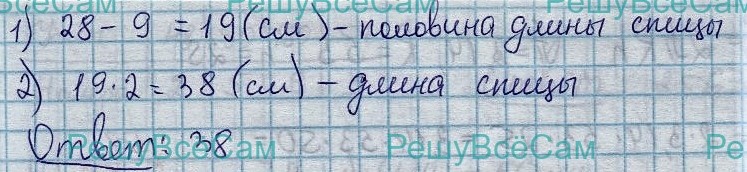 РешуВсёСам РешуВсёСам
1) 28 - 9 = 19 (см) - половина длины спицы
2) 19 · 2 = 38 (см) - длина спицы
Ответ: 38
ВсёСам РешуВсёСам Ре